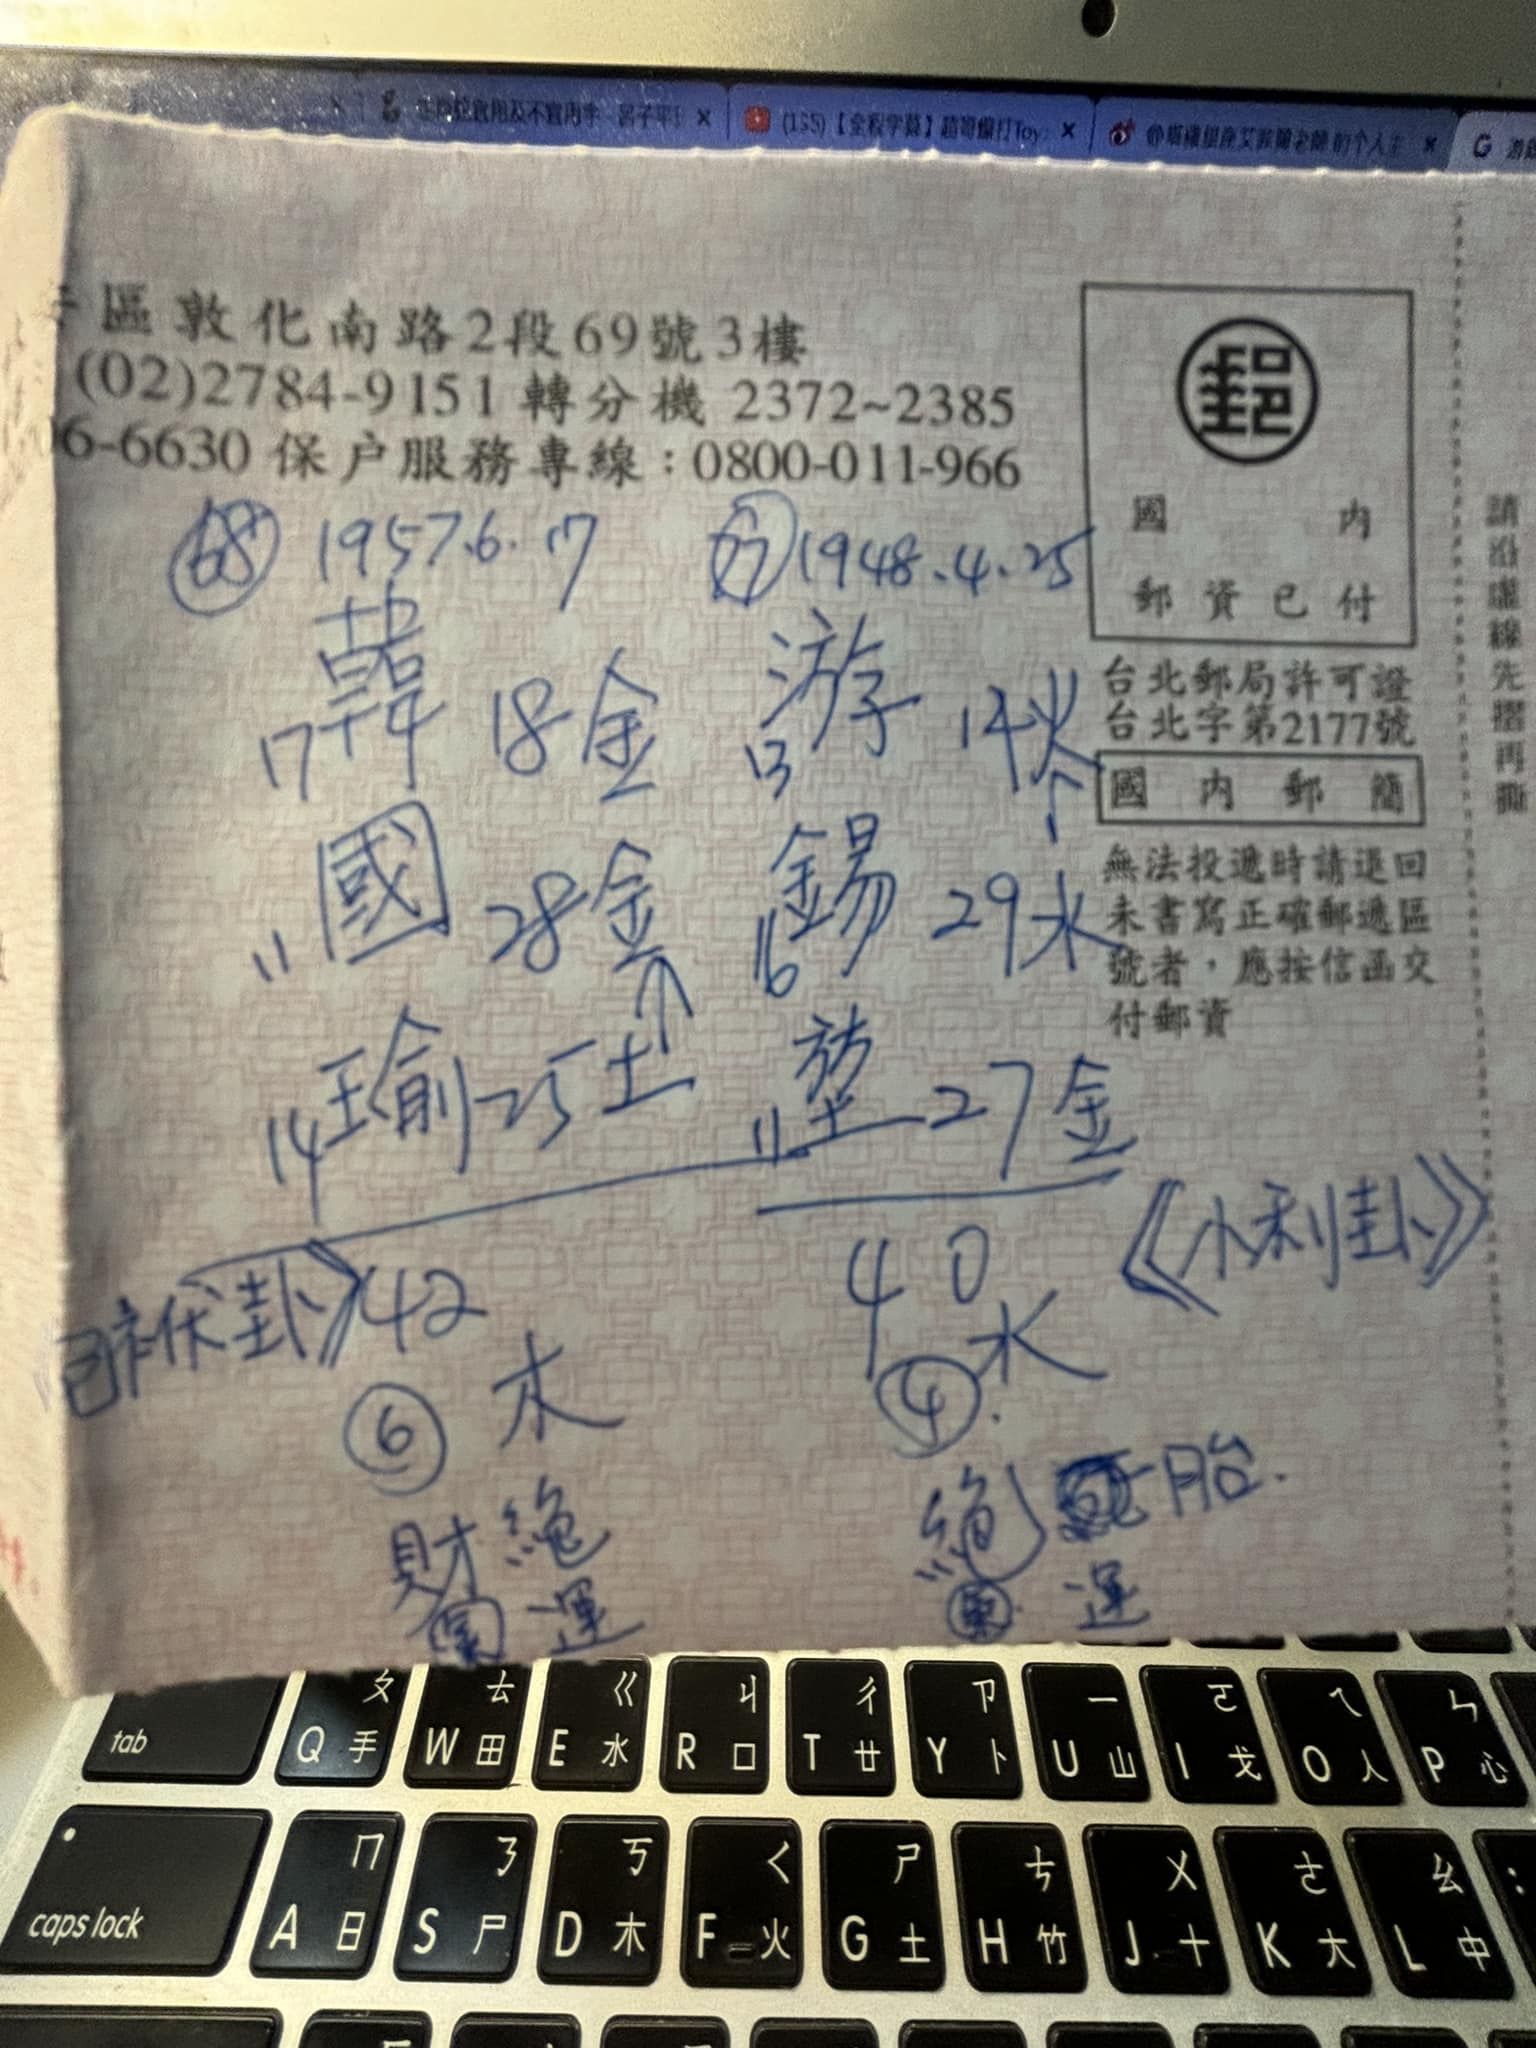 (155)【全程字幕】
的个人主
區敦化南路2段69號3樓
(02)2784-9151 轉分機 2372~2385
06-6630 保户服務專線：0800-011-966
郵
國內
郵資已付
台北郵局許可證
台北字第2177號
國內郵簡
無法投遞時請退回
未書寫正確郵遞區
號者，應按信函交
付郵資
請沿虛線先摺再撕
68 1957.6.17
韓 17 18金
國 11 28金↑
瑜 14 25土
42
伏卦》
⑥ 木
財絕
運
1948.4.25
游 13 14火↑
錫 16 29水
堃 11 27金
40
水
《小利卦》
④
絕 胎
運
tab
Q 手 ㄆ
W 田 ㄊ
E 水 ㄍ
R 口 ㄐ
T 廿 ㄔ
Y 卜 ㄗ
U 山 ㄧ
I 戈 ㄛ
O 人 ㄟ
P 心 ㄣ
caps lock
A 日 ㄇ
S 尸 ㄋ
D 木 ㄎ
F 火 ㄑ
G 土 ㄕ
H 竹 ㄘ
J 十 ㄨ
K 大 ㄜ
L 中 ㄠ